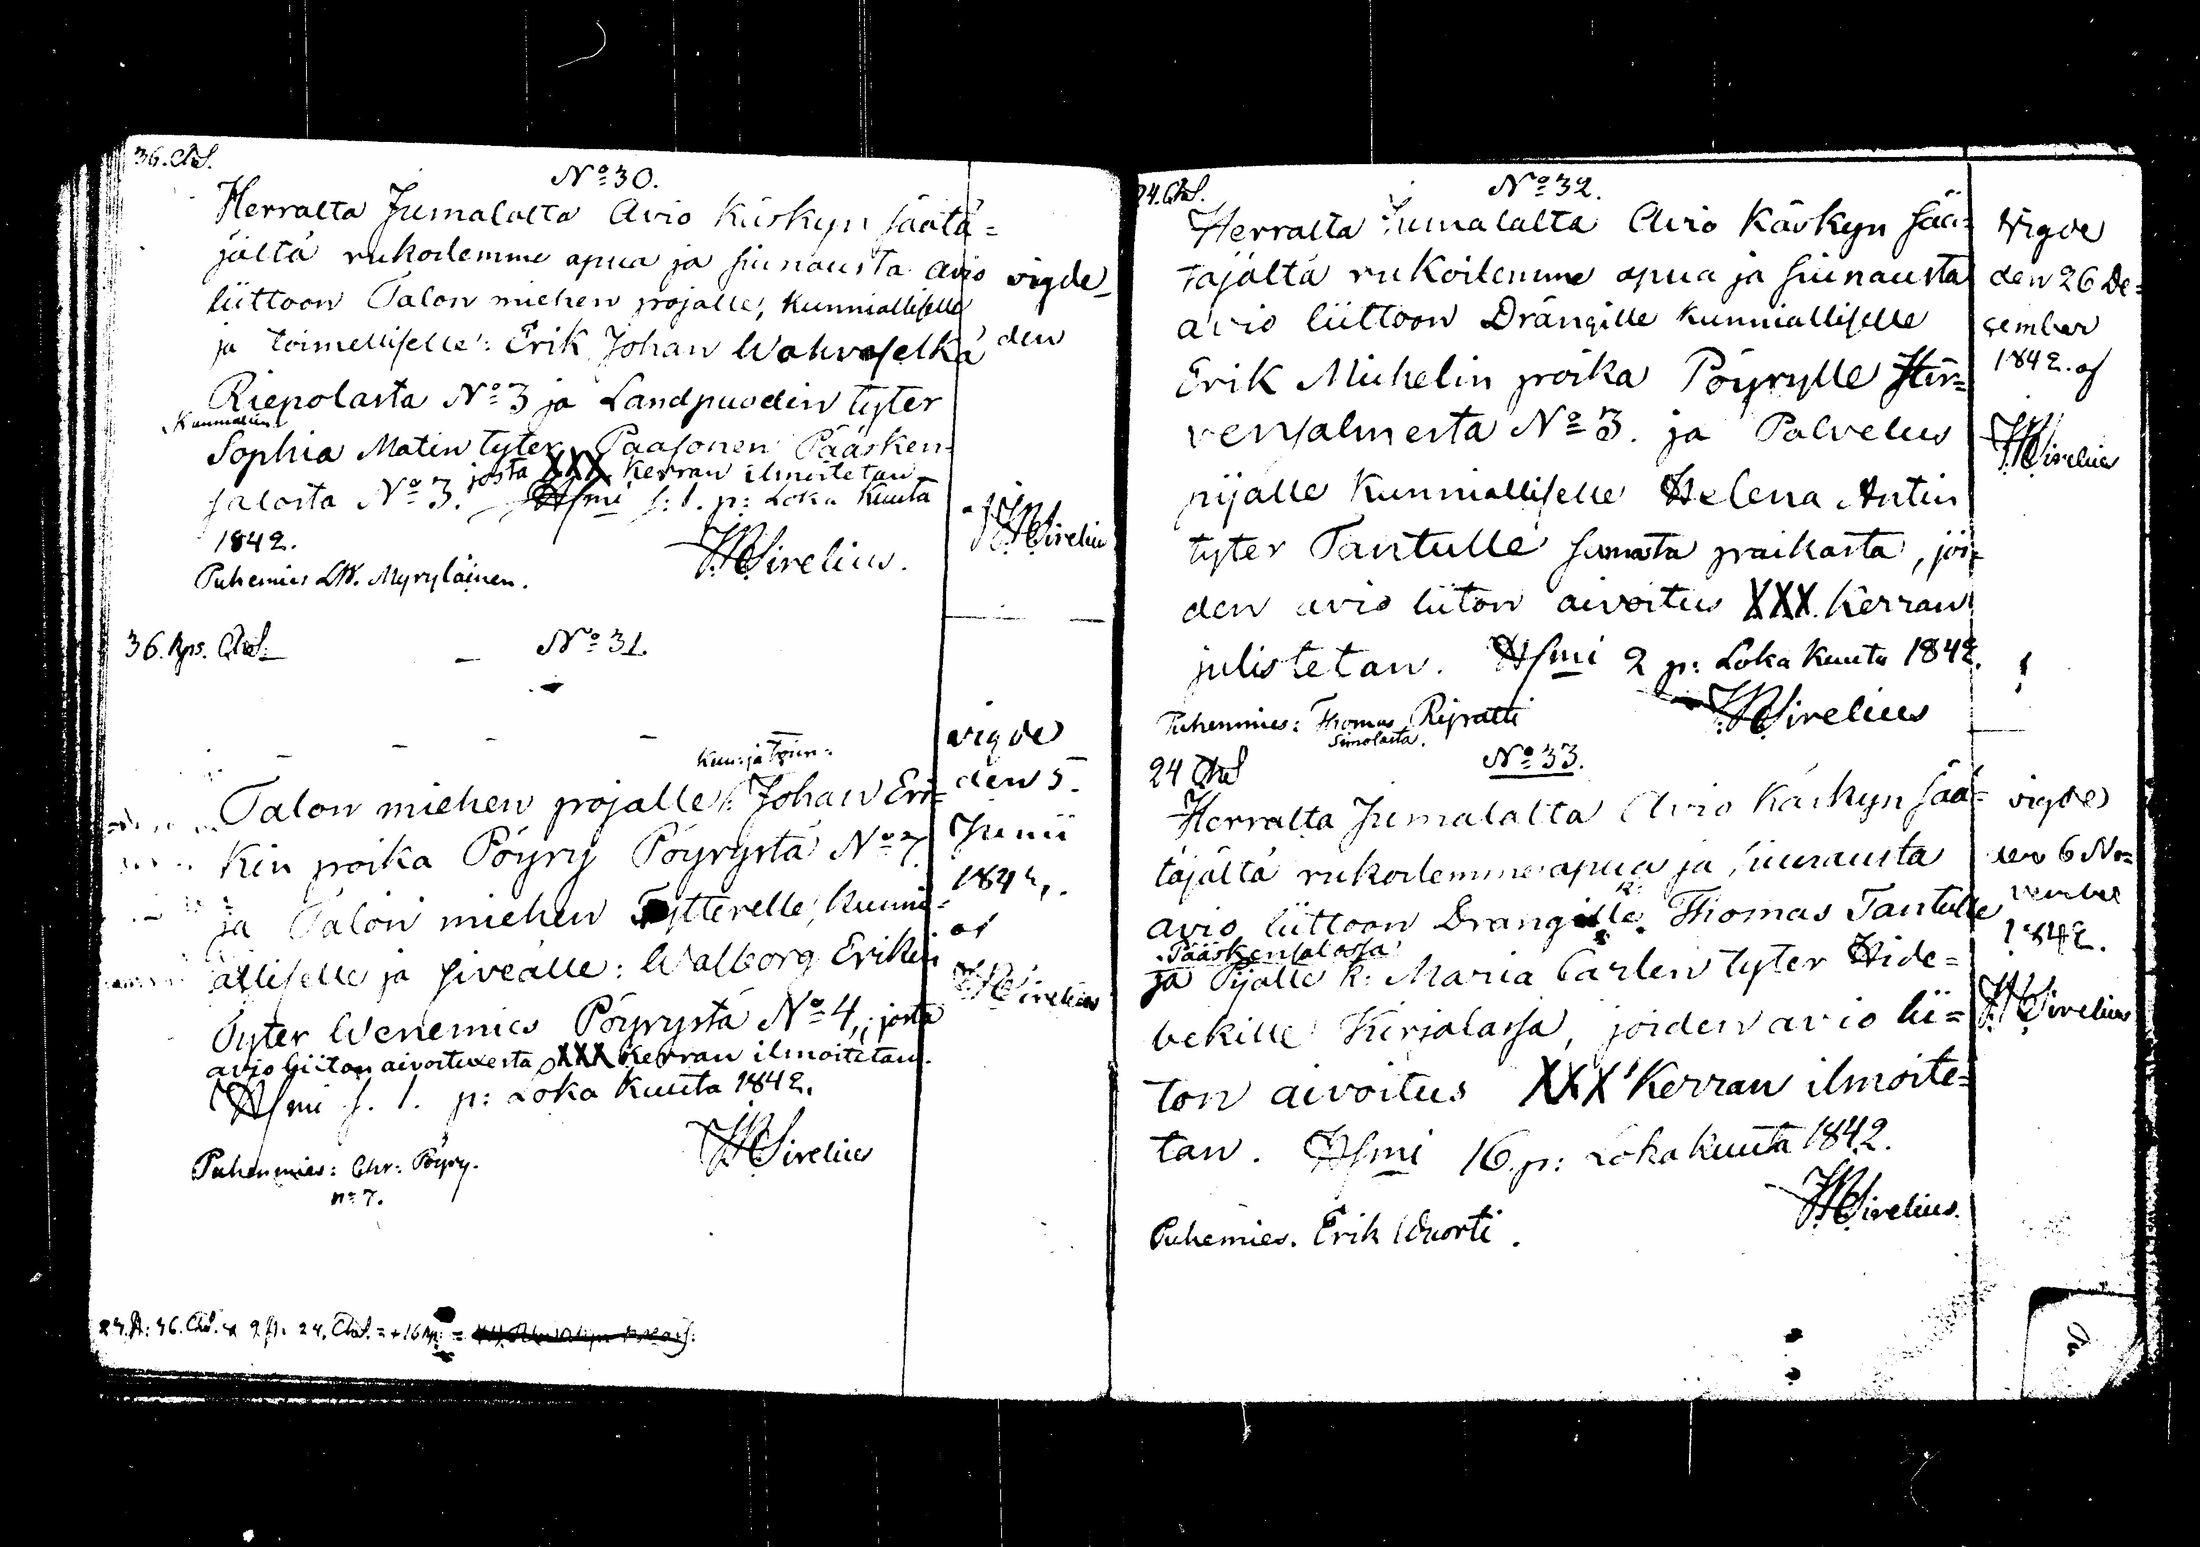 36. Chs.
No 30.
Herralta Jumalalta Avio Käskyn säätä=
jältä rukoilemme apua ja siunausta avio
liittoon Talon miehen pojalle, kunnialliselle
ja toimelliselle: Erik Johan Wahvaselkä
Riepolasta No 3 ja Landpuodin tyter
Sophia Matin tyter Paasonen Pääsken=
josta XXX kerran ilmoitetan
salosta No 3. Hsmi s: 1. p: Loka kuuta
1842.
HRSirelius.
Puhemies LW. Myryläinen.
vigde
den
af
HRSirelius
36. Kps. Chs.
No 31.
Kun: ja Toim:
Talon miehen pojalle: Johan Eri=
kin poika Pöyry Pöyrystä No 7
ja Talon miehen Tytterelle, kunni=
alliselle ja siveälle: Walborg Erikin
Tyter Wenemies Pöyrystä No 4, josta
avio liiton aivoituxesta XXX kerran ilmoitetan.
Hsmi s. 1. p: Loka kuuta 1842.
HRSirelius
Puhenmies: Chr: Pöyry.
no 7.
vigde
den 5.
Junii
af
HRSirelius
24. Chs.
No 32.
Herralta Jumalalta Avio Käskyn sää=
täjältä rukoilemme apua ja siunausta
avio liittoon Drängille kunnialliselle
Erik Michelin poika Pöyrylle Hir=
vensalmesta No 3. ja Palvelus
pijalle kunnialliselle Helena Antin
tyter Tantulle samasta paikasta, joi=
den avio liiton aivoitus XXX. kerran
julistetan. Hsmi 2 p: Loka kuuta 1842.
HRSirelius
Puhenmies: Thomas Ripatti
Simolasta.
Wigde
den 26 De=
cember
1842. af
HRSirelius
24 Chs
No 33.
Herralta Jumalalta Avio Käskyn sää=
täjältä rukoilemme apua ja siunausta
avio liittoon Drangille k: Thomas Tantulle
Pääskensalossa
ja Pijalle k: Maria Carlen tyter Hide=
bekille Kirjalassa, joiden avio lii=
ton aivoitus XXX kerran ilmoite=
tan. Hsmi 16. p: Loka kuuta 1842.
HRSirelius.
Puhemies. Erik Wuorti.
vigde
den 6 No=
vember
1842.
HRSirelius